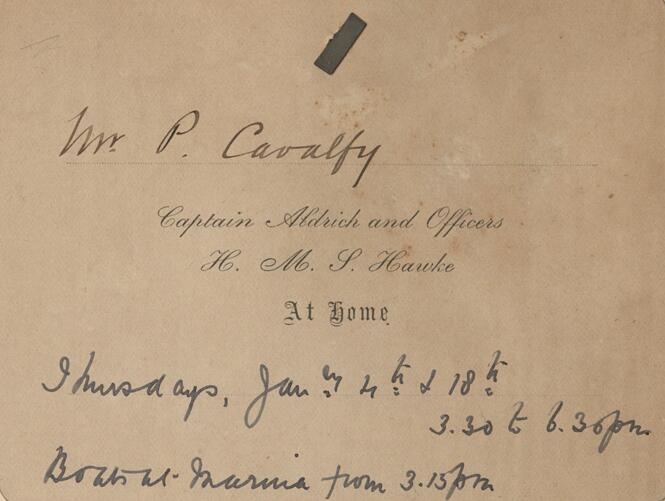 Mr P. Cavalfy
Captain Aldrich and Officers
H. M. S. Hawke
At Home
Thursdays, Jan.ry 4th & 18th
3.30 to 6.30 pm.
Boats at Marina from 3.15 pm